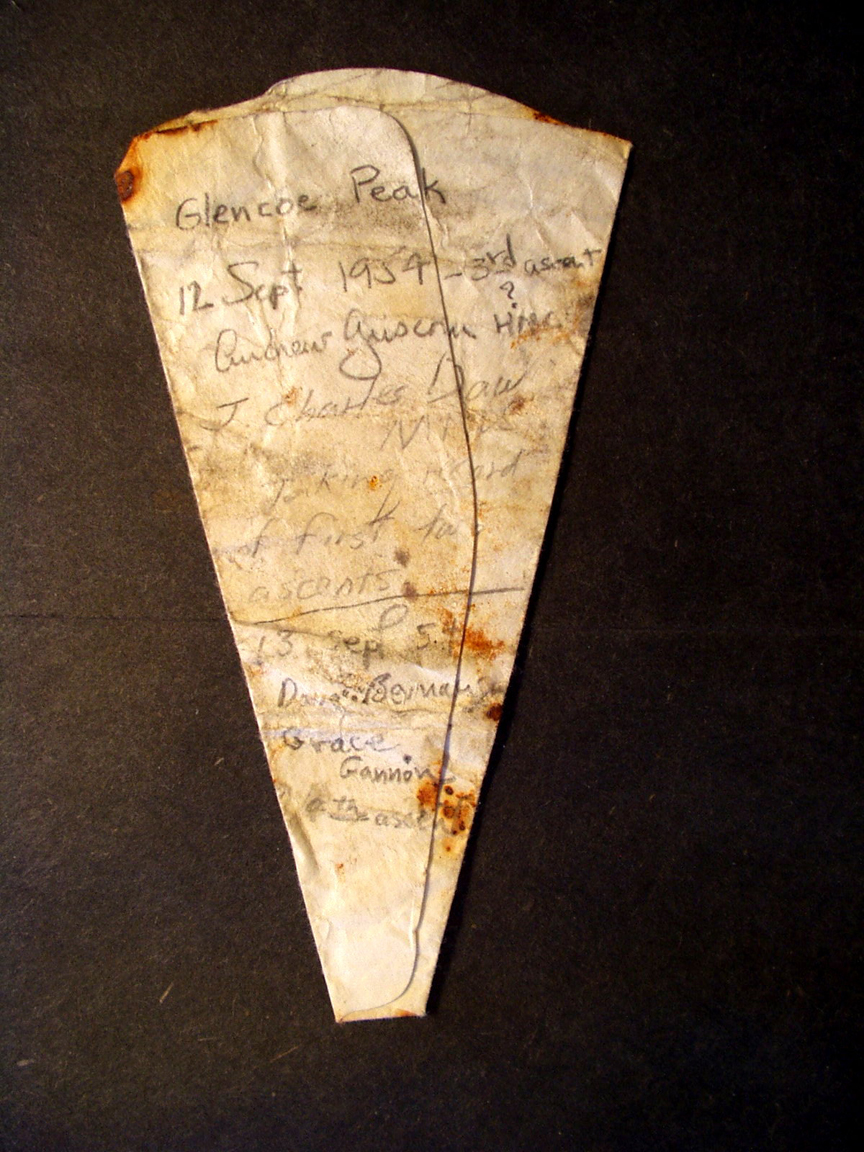 Glencoe Peak
12 Sept 1954 - 3rd ascent
?
Andrew Griscom HMC
J Charles Daw
Taking record
of first two
ascents.
13 Sep 54
Dave Bernays
Grace
Gannon
? 4th ascent